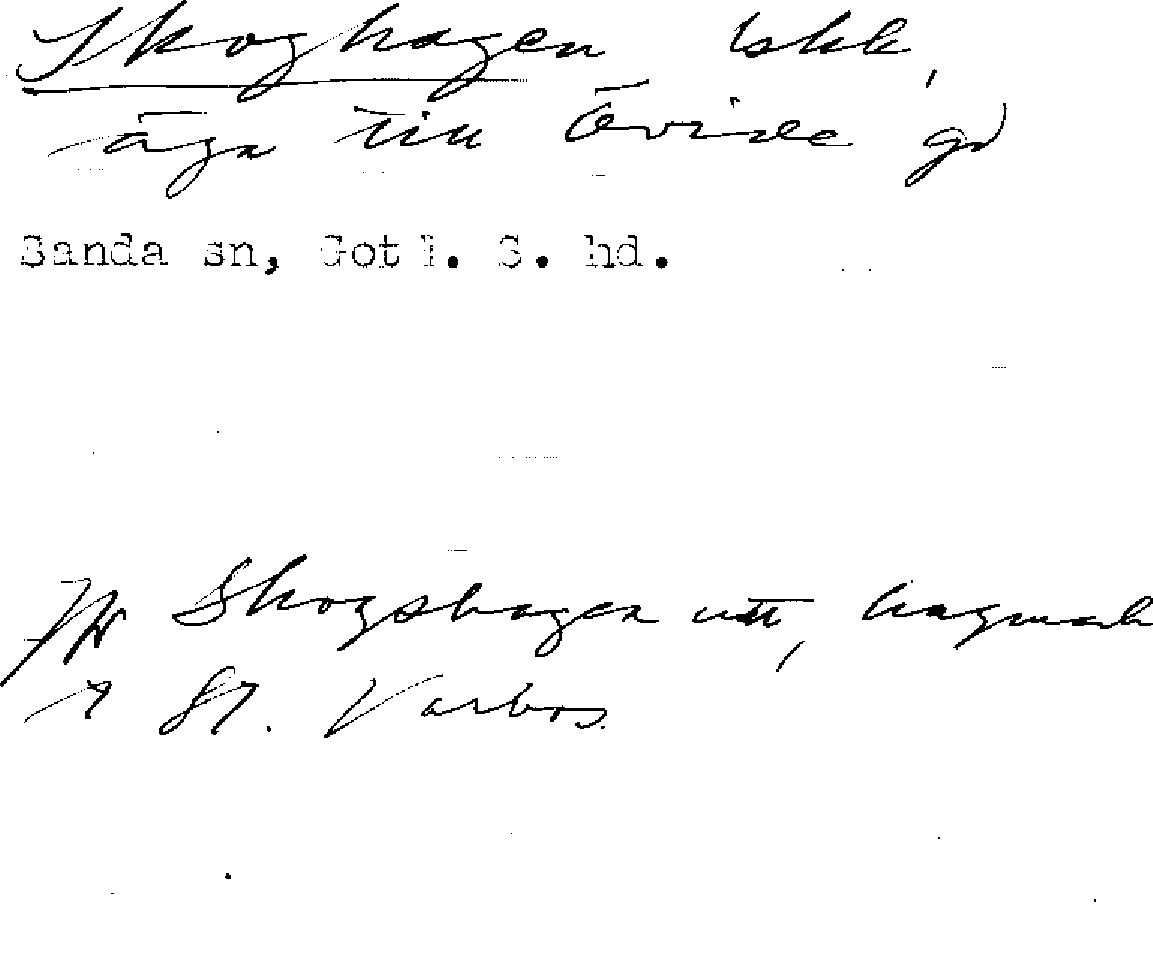 Skoghagen bkk,
äga till Övide gd
Sanda sn, Gotl. S. hd.
Jfr Skogshagen utt, hagmark
t St. Varbos